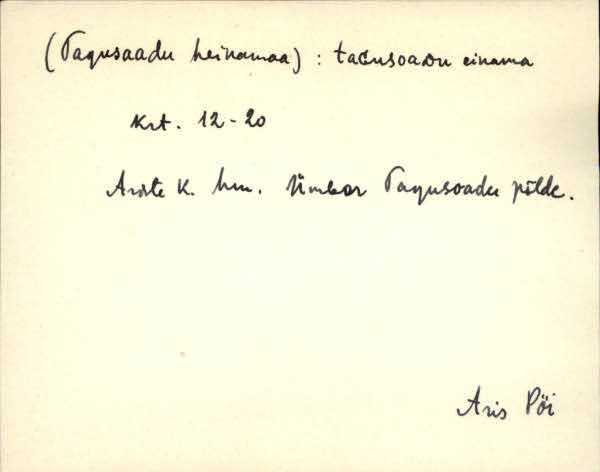 (Tagusaadu heinamaa) : taGusoaDu einama
Krt. 12-20
Ardte K. hm. Ümber Tagusoadu põlde.
Aris Pöi